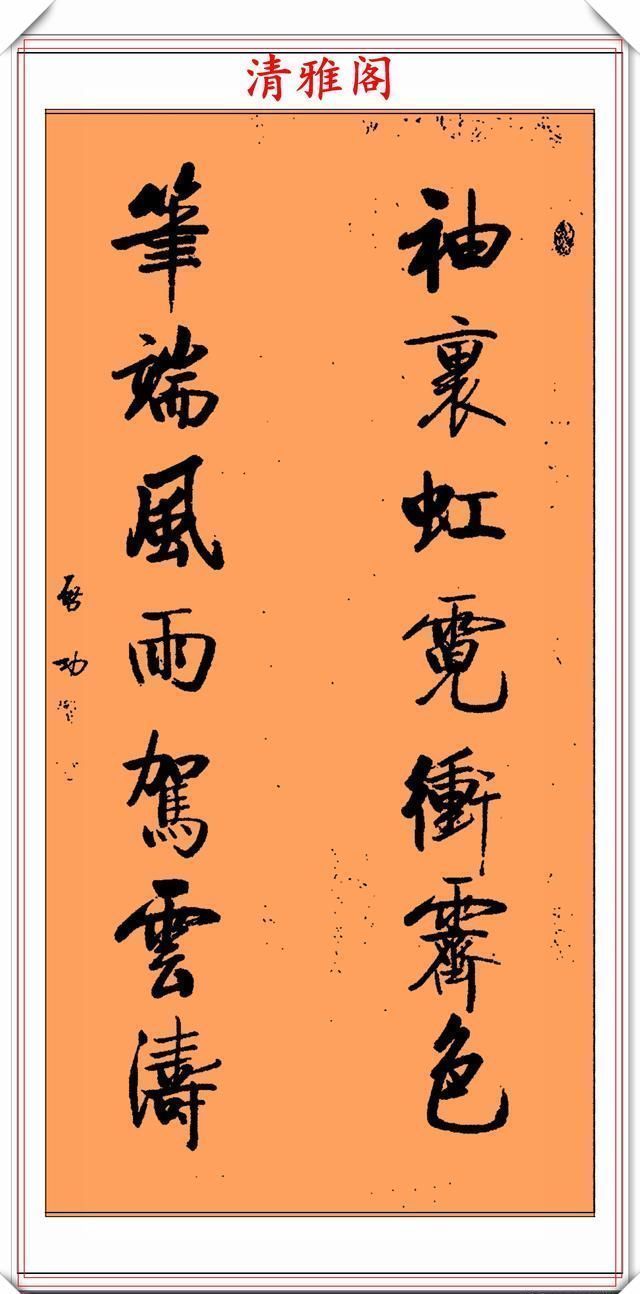 清雅阁
袖裏虹霓衝霽色
筆端風雨駕雲濤
啓功